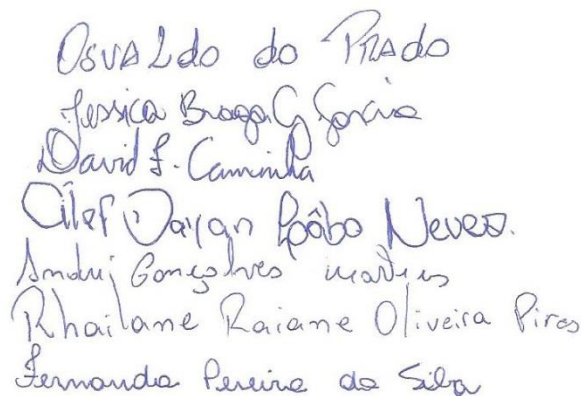 Osvaldo do Prado
Jessica Braga G Garcia
David F. Caminha
Neves.
Gonçalves Martins
Rhailane Raiane Oliveira Pires
Fernanda Pereira da Silva